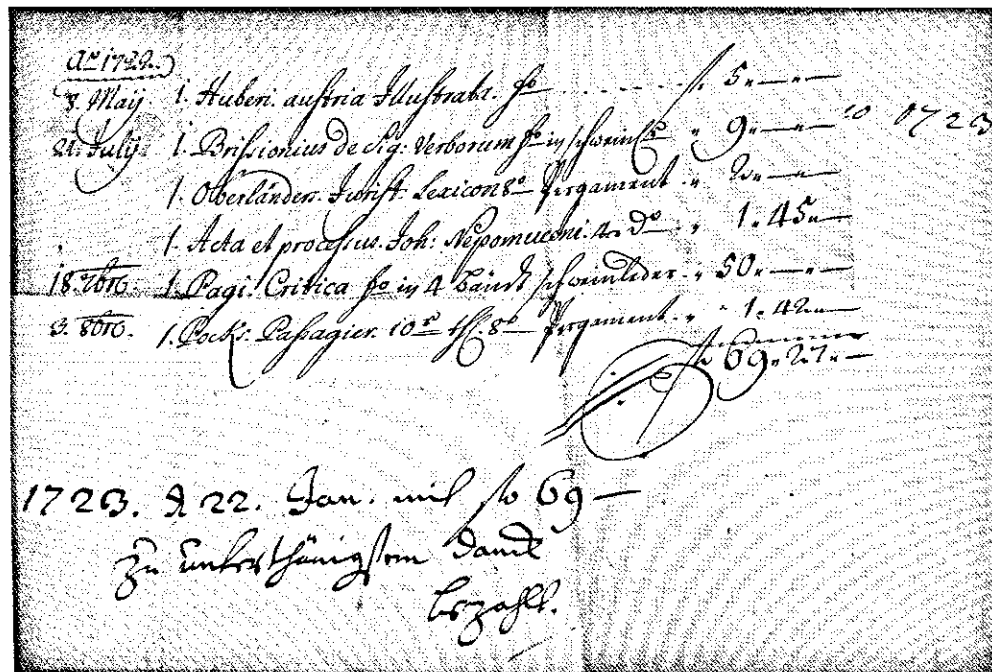 Aõ 1722.
8. Maij 1. Huberi. austria Illustrata. fo fl. 5.—.—
21. July 1. Brissonius de Sig: Verborum fo in schweinl: „ 9.—.—
1. Oberländer. Jurist. Lexicon 8o Pergament. „ 2.—.—
1. Acta et processus. Joh: Nepomuceni. 4to do „ 1. 45.—
18. 7bris 1. Pagi. Critica fo in 4 bändt schweinleder. „ 50.—.—
3. 8bris. 1. Pocks. Passagier. 10r thl. 8o Pergament. „ 1. 42.—
fl 69. 27.—
1723. d 22. Jan. mit fl 69 —
zu unterthänigstem Danck
bezahlt.